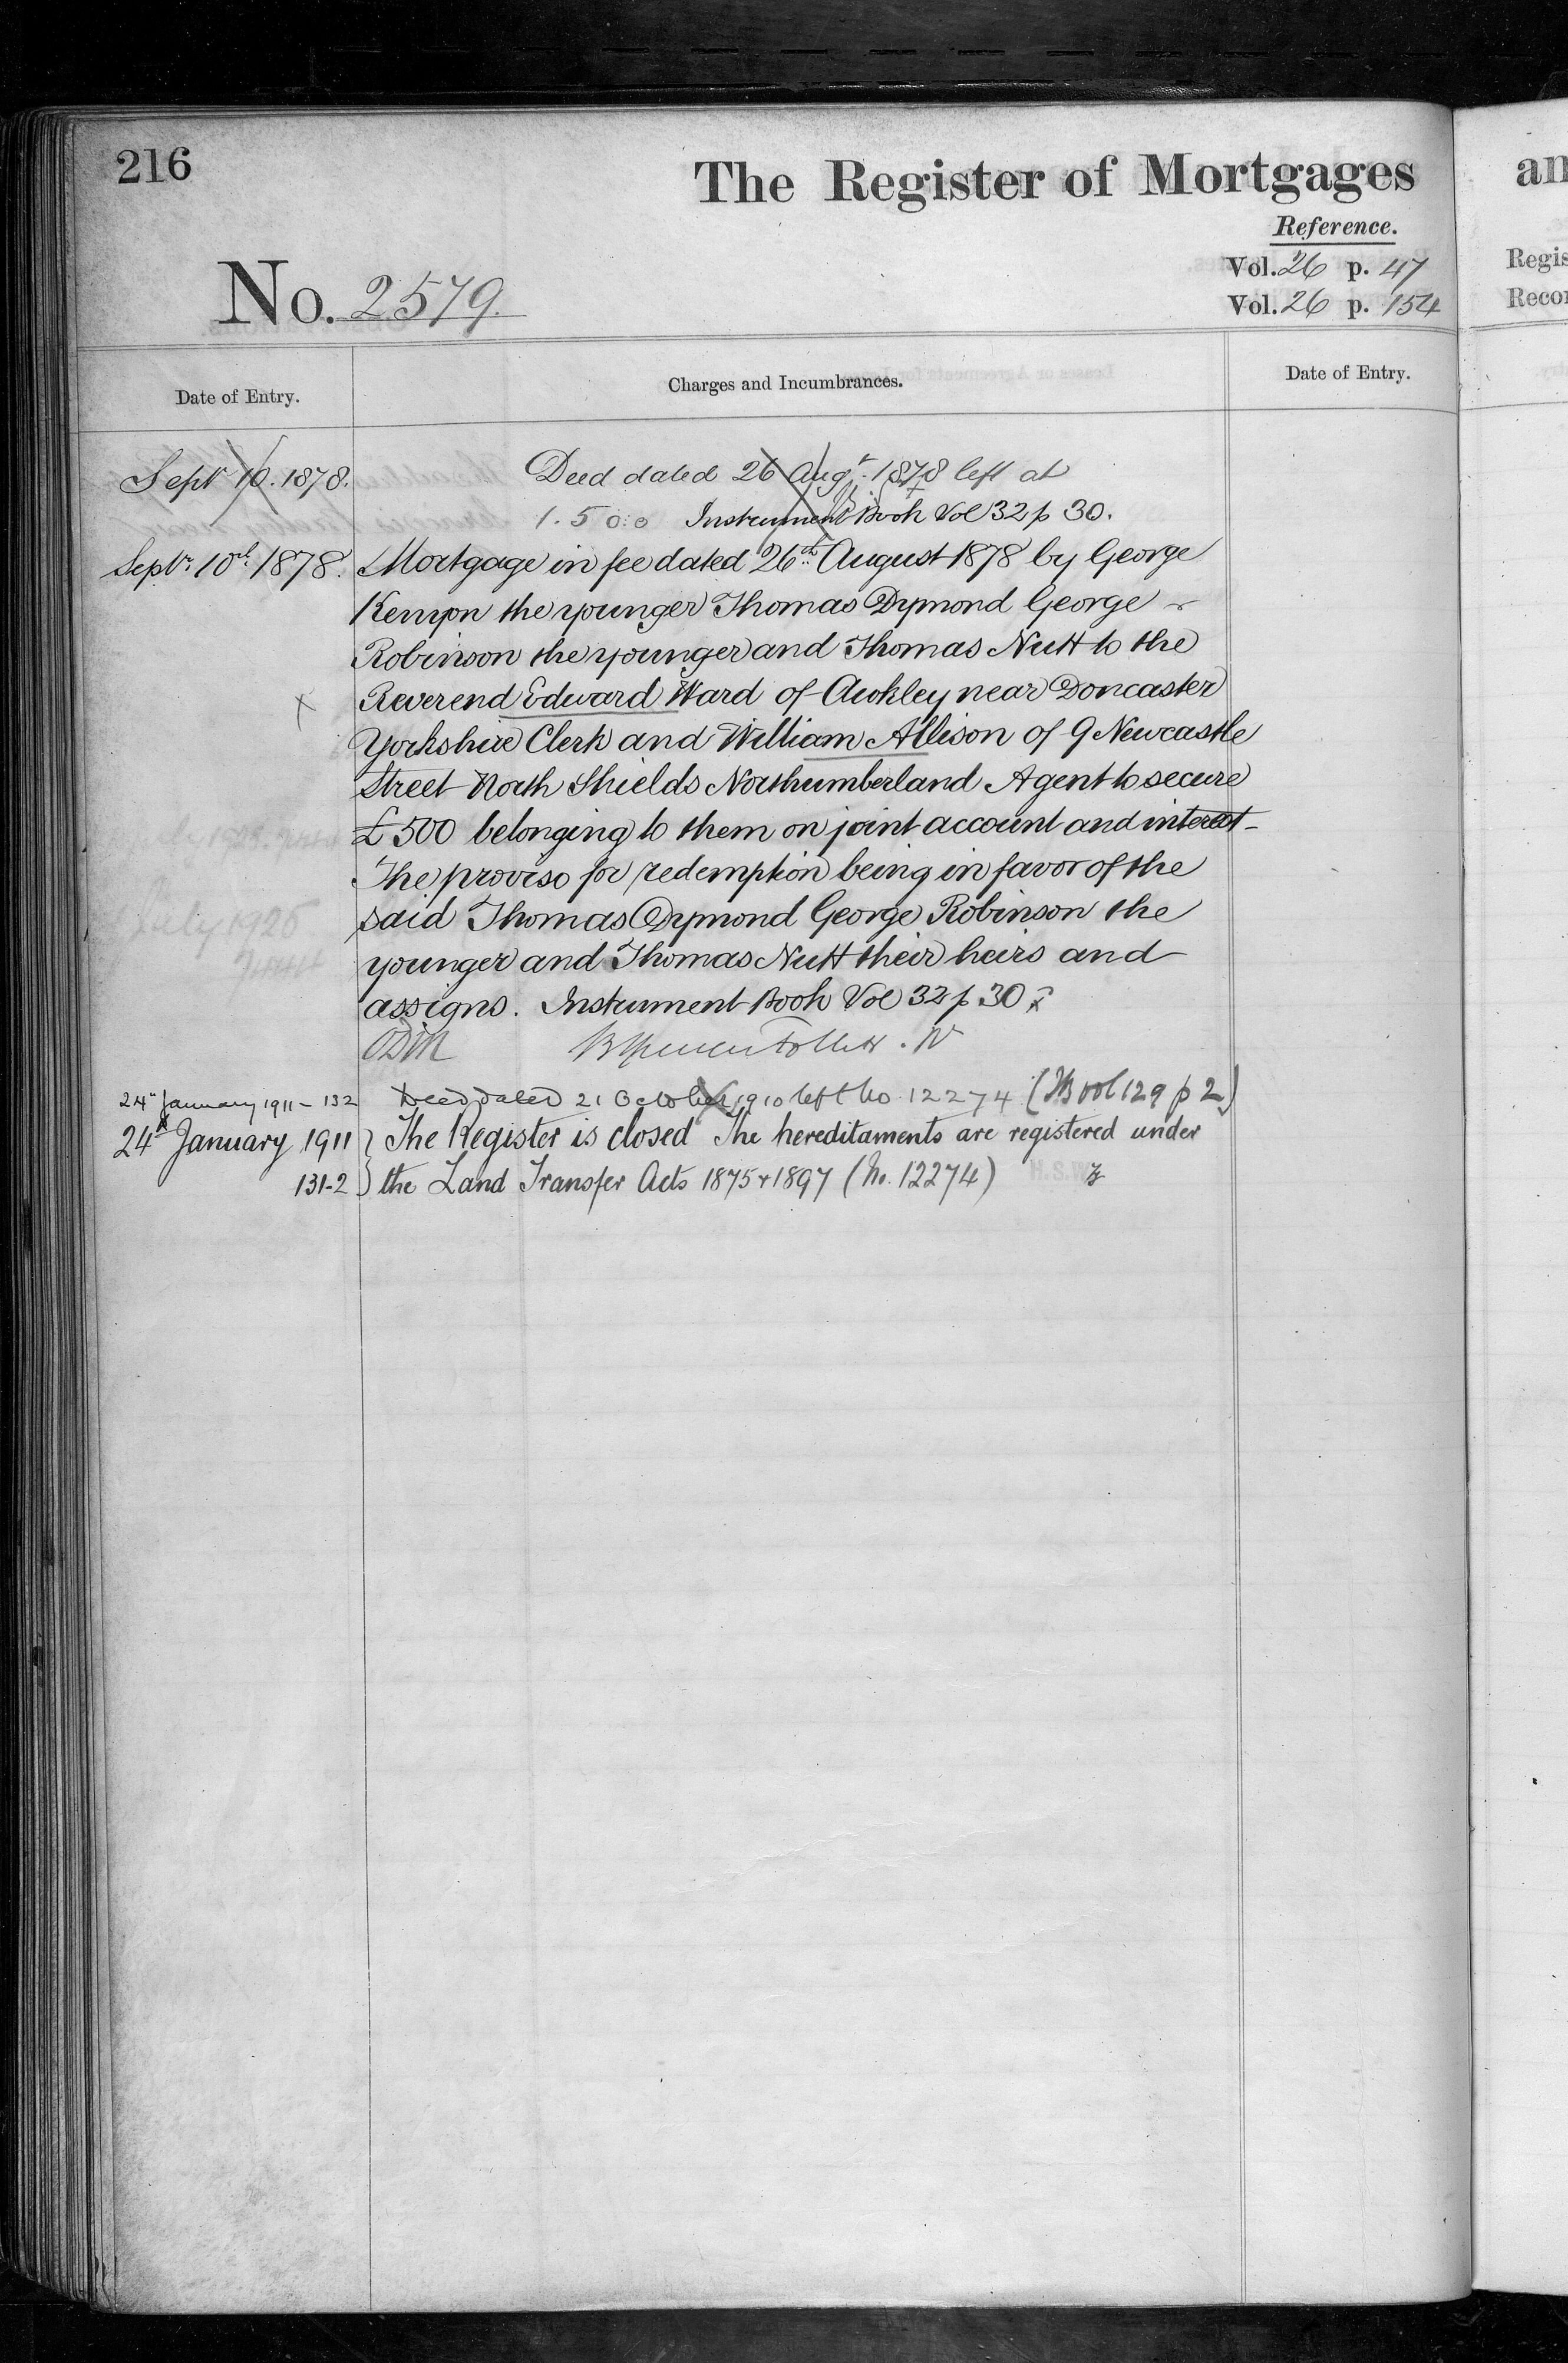 216
The Register of Mortgages
Reference.
Vol. 26 p. 47
Vol. 26 p. 154
No. 2579.
an
Regis
Recor
Date of Entry.
Charges and Incumbrances.
Date of Entry.
Sept 10. 1878.
Deed dated 26 Augt. 1878 left at
1. 5 0.0 Instrument Book Vol 32 p 30.
Septr. 10th. 1878.
Mortgage in fee dated 26th. August 1878 by George
Kenyon the younger Thomas Dymond George
Robinson the younger and Thomas Nutt to the
Reverend Edward Ward of Awkley near Doncaster
Yorkshire Clerk and William Allison of 9 Newcastle
Street North Shields Northumberland Agent to secure
£500 belonging to them on joint account and interest –
The proviso for redemption being in favor of the
said Thomas Dymond George Robinson the
younger and Thomas Nutt their heirs and
assigns. Instrument Book Vol 32 p 30
24th January 1911 – 132
Deed dated 21 October 1910 left No 12274 (IB vol 129 p 2)
24th January 1911
The Register is closed The hereditaments are registered under
131-2
the Land Transfer Acts 1875 + 1897 (No. 12274)
H.S.W.